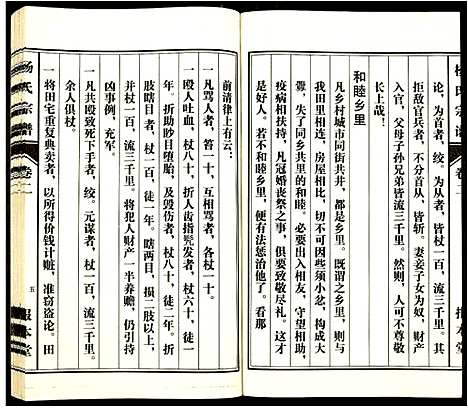 杨氏宗谱
卷二
报本堂
论，为首者，绞。为从者，皆杖一百，流三千里。其
拒敌官兵者，不分首从，皆斩。妻妾子女为奴，财产
入官，父母子孙兄弟皆流三千里。然则，人可不尊敬
长上哉！
和睦乡里
凡乡村城市同街共井，都是乡里。既谓之乡里，
我田里相连，房屋相比，不可因些须小忿，构成大
衅。必须念了同乡共井的亲近，出入相友，守望相助，
疾病相扶持，凡冠婚丧祭之事，俱要致敬尽礼。这才
是和睦乡里。若有不和睦乡里的，便有法惩治他了。看那
前清律上有云：
一凡骂人者，笞一十，互相骂者，各杖一十。
一凡殴人吐血，杖八十，折人齿指髡发者，杖六十，徒一
年。折肋眇目堕胎，及毁伤者，杖八十，徒二年。折
肢瞎目者，杖一百，徒一年。瞎两目，损二肢以上，
并杖一百，流三千里。将犯人财产一半养赡，仍引持
凶事例，充军。
一凡共殴致死下手者，绞。元谋者，杖一百，流三千里。
余人俱杖。
一将田宅重复典卖者，以所得价钱计赃，准窃盗论。田
杨氏宗谱
卷二
五
报本堂